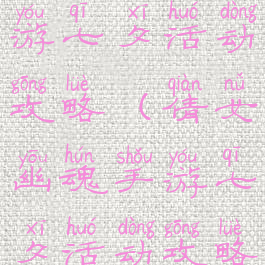 yóu qī xī huó dòng
游七夕活动
gōng lüè ( qiàn nǚ
攻略（倩女
yōu hún shǒu yóu qī
幽魂手游七
xī huó dòng gōng lüè
夕活动攻略